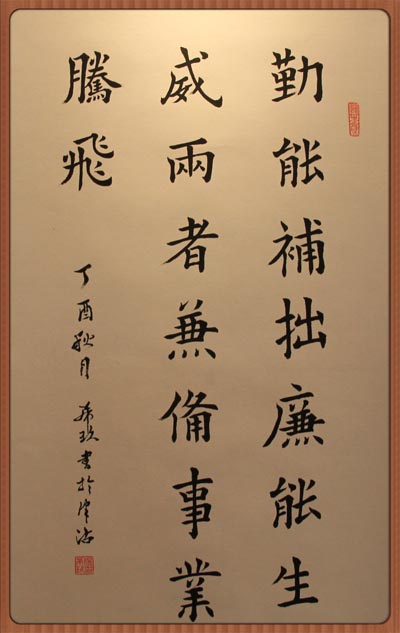 勤能補拙廉能生
威兩者兼備事業
騰飛
丁酉秋月 希玖書於津沽